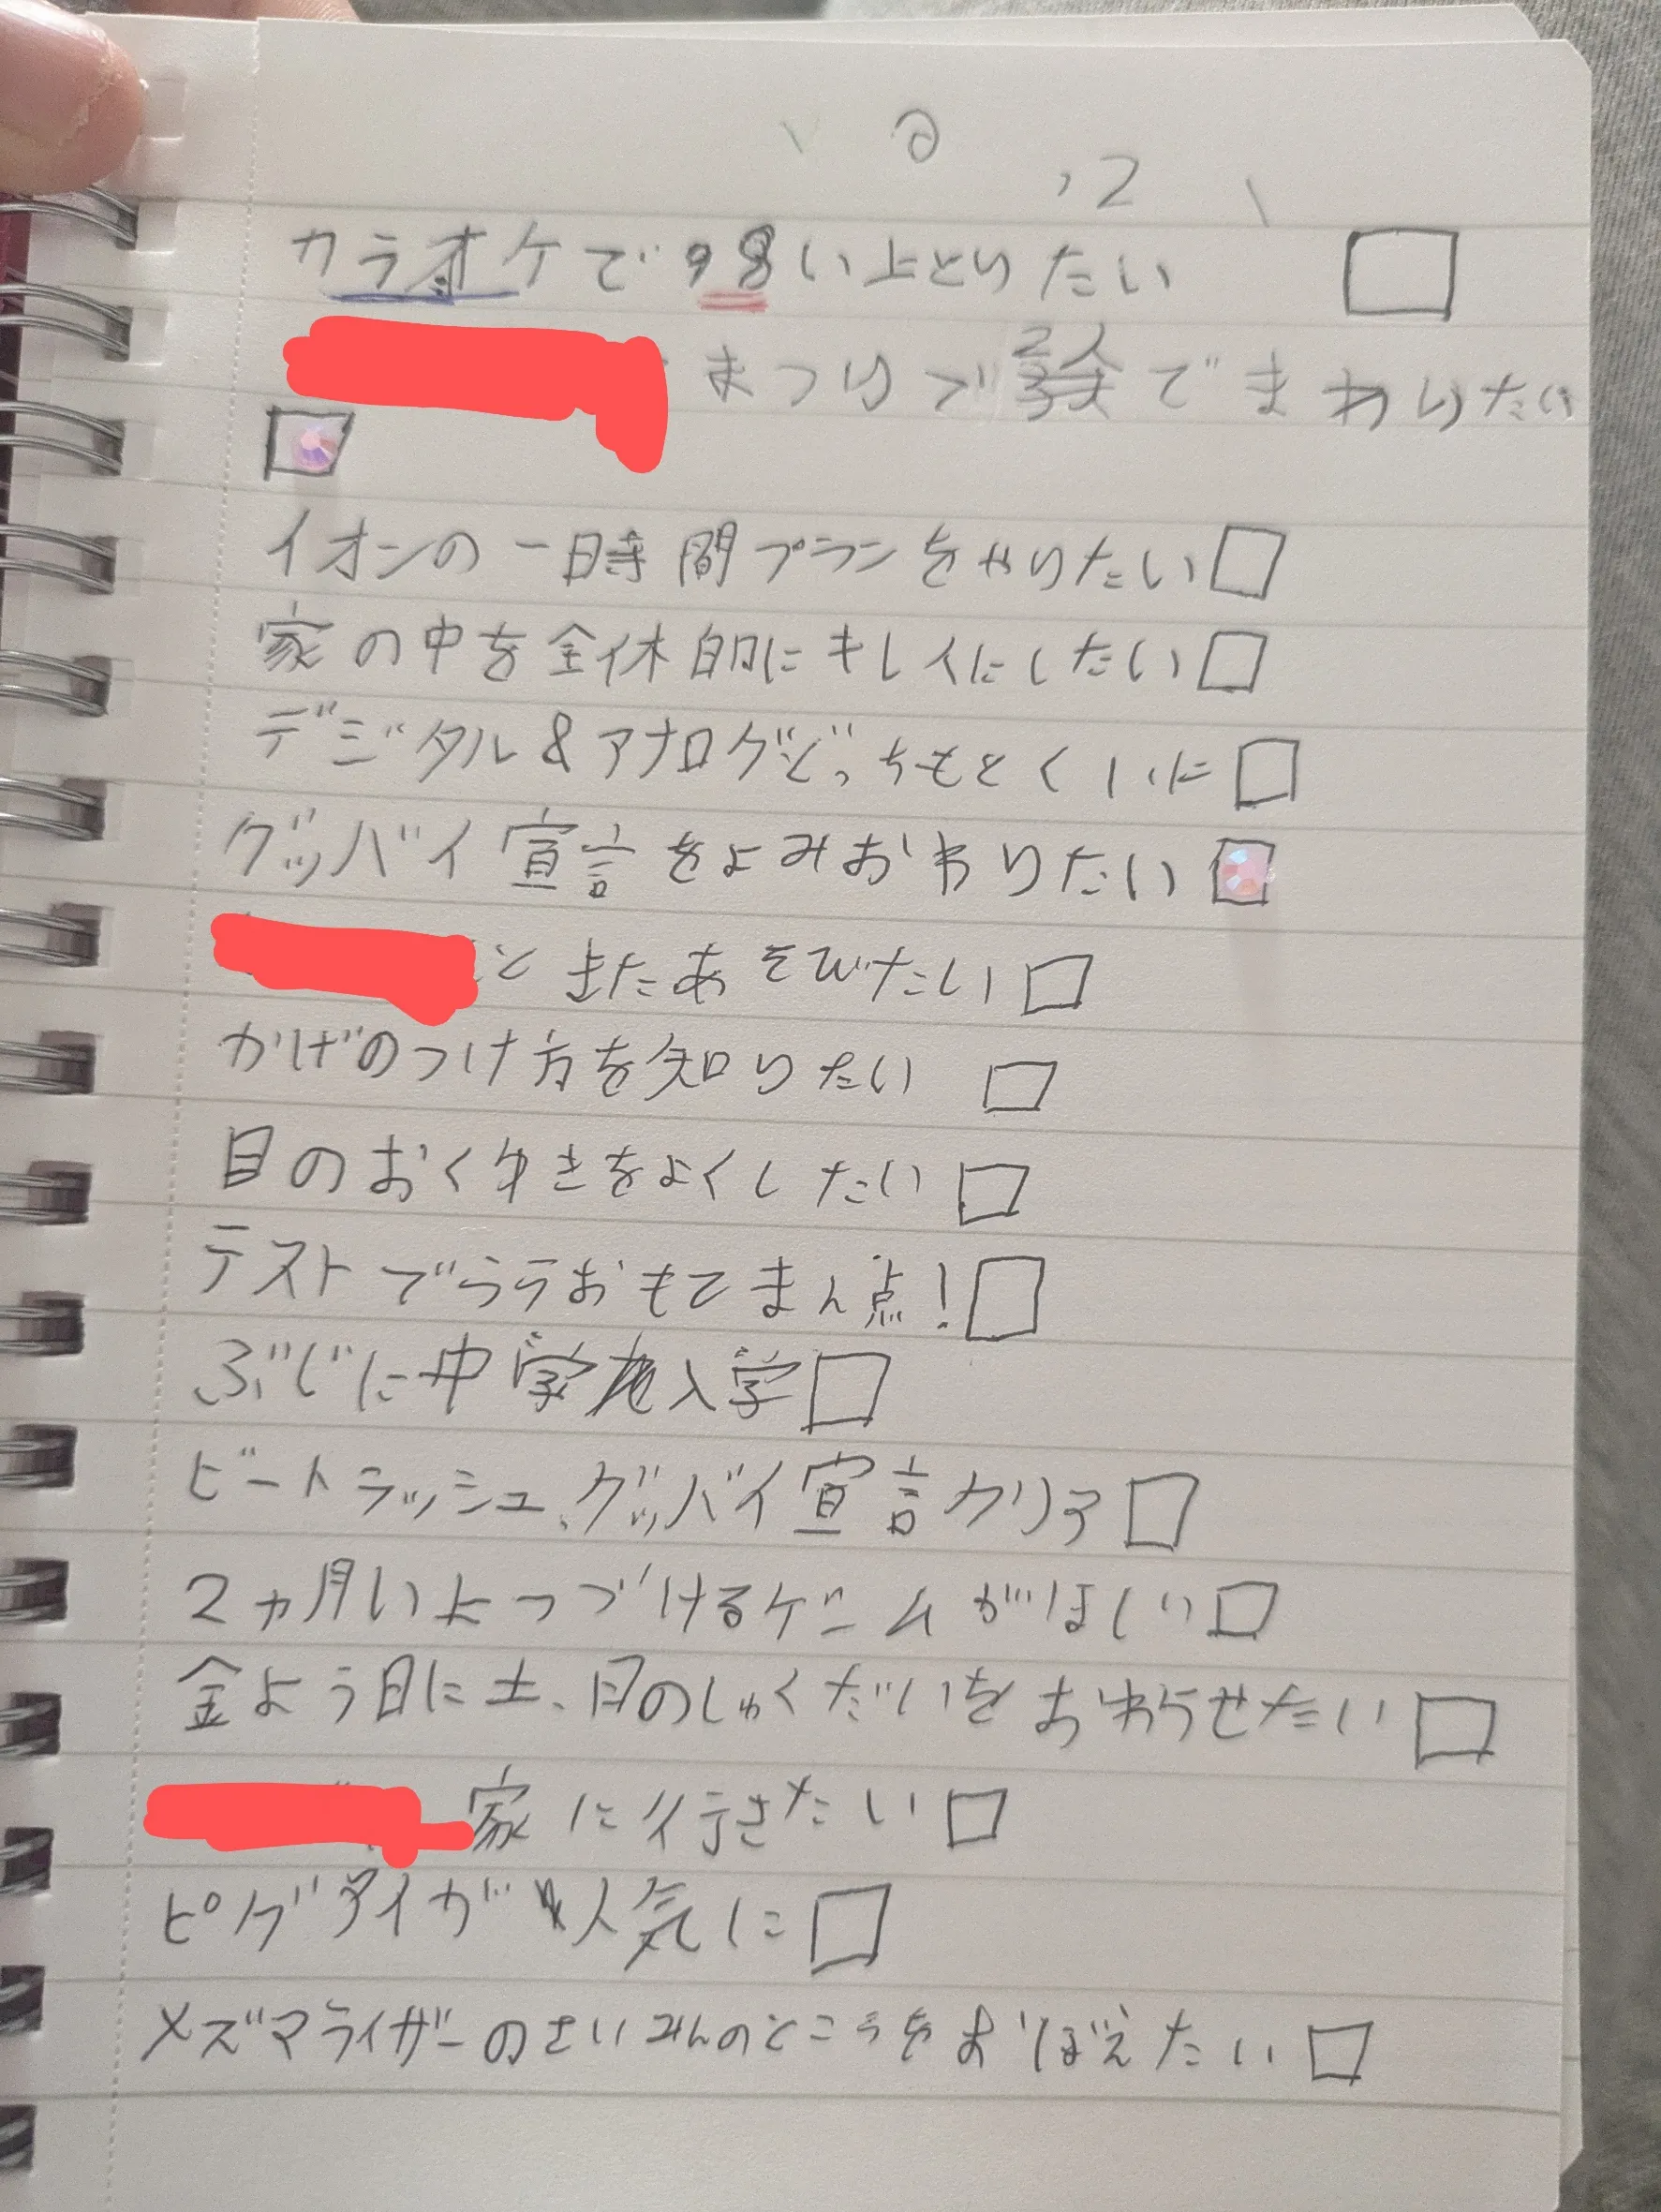 カラオケで98い上とりたい
まつりで2人でまわりたい
イオンの一日時間プランをやりたい
家の中を全体的にキレイにしたい
デジタル&アナログどっちもとくいに
グッバイ宣言をよみおわりたい
とまたあそびたい
かげのつけ方を知りたい
目のおくゆきをよくしたい
テストでうらおもてまん点!
ぶじに中学入学
ビートラッシュ、グッバイ宣言クリア
2ヵ月い上つづけるゲームがほしい
金よう日に土、日のしゅくだいをおわらせたい
家に行きたい
ピグダイが人気に
メズマライザーのさいみんのところをおぼえたい